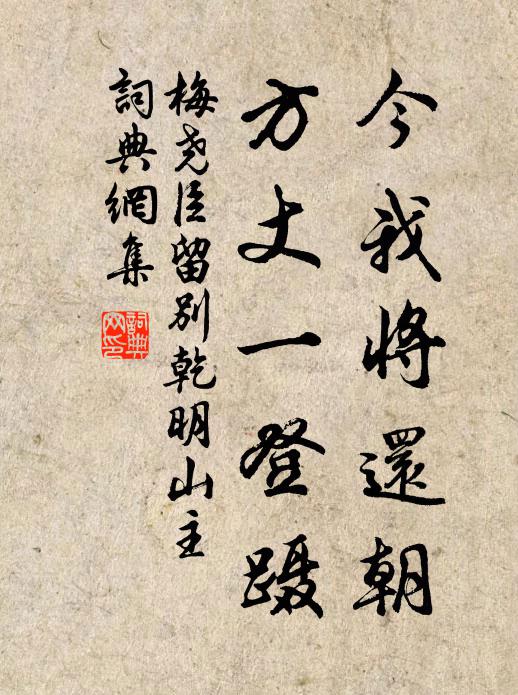 今我將還朝
方丈一登蹑
梅尧臣留别乾明山主
詞典網集
詞典網印